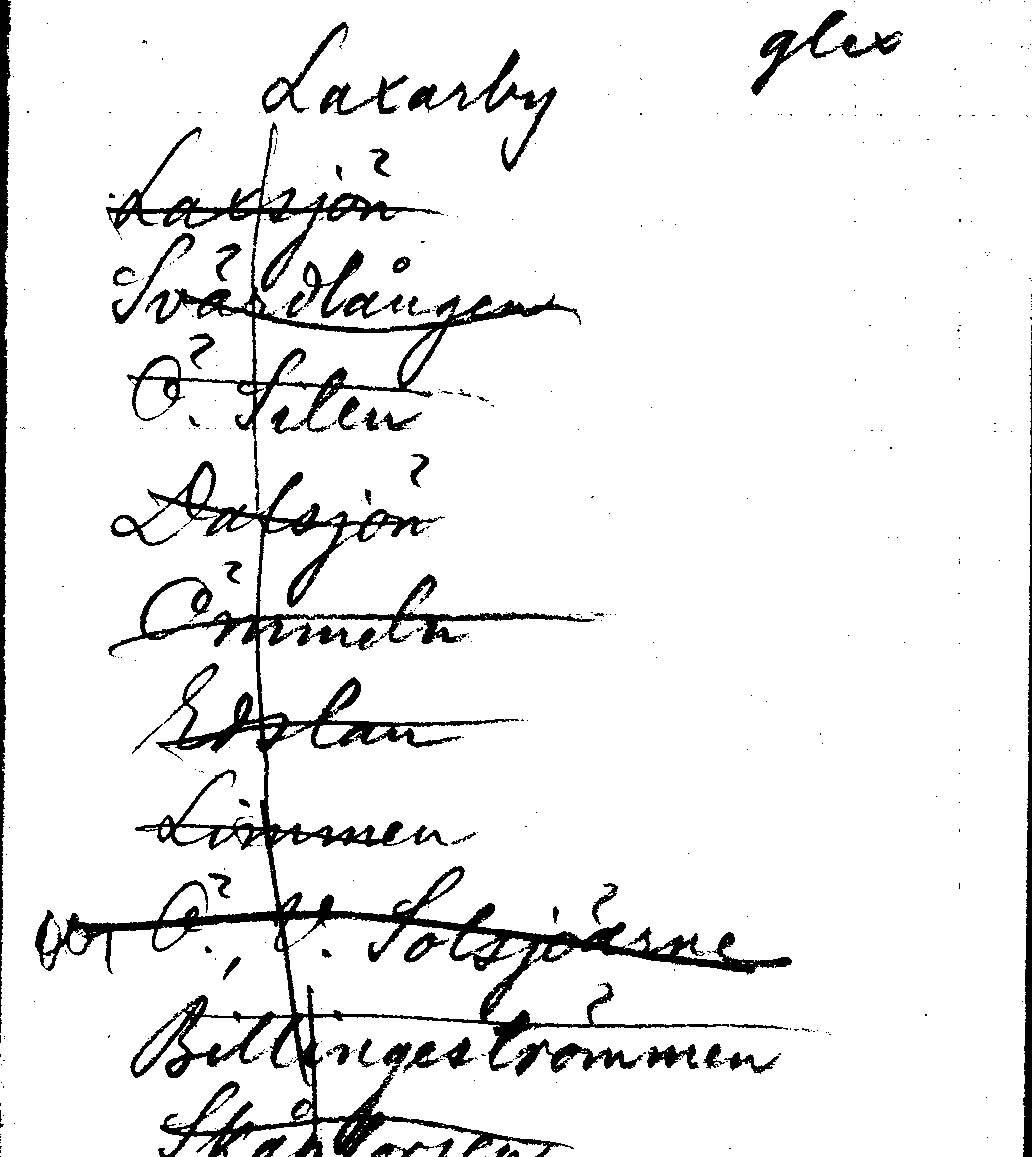 glix
Laxarby
Laxsjön
Svärdlången
Ö. Silen
Dalsjön
Ömmeln
Edslan
Limmen
Ö., V. Solsjöarne
Billingeströmmen